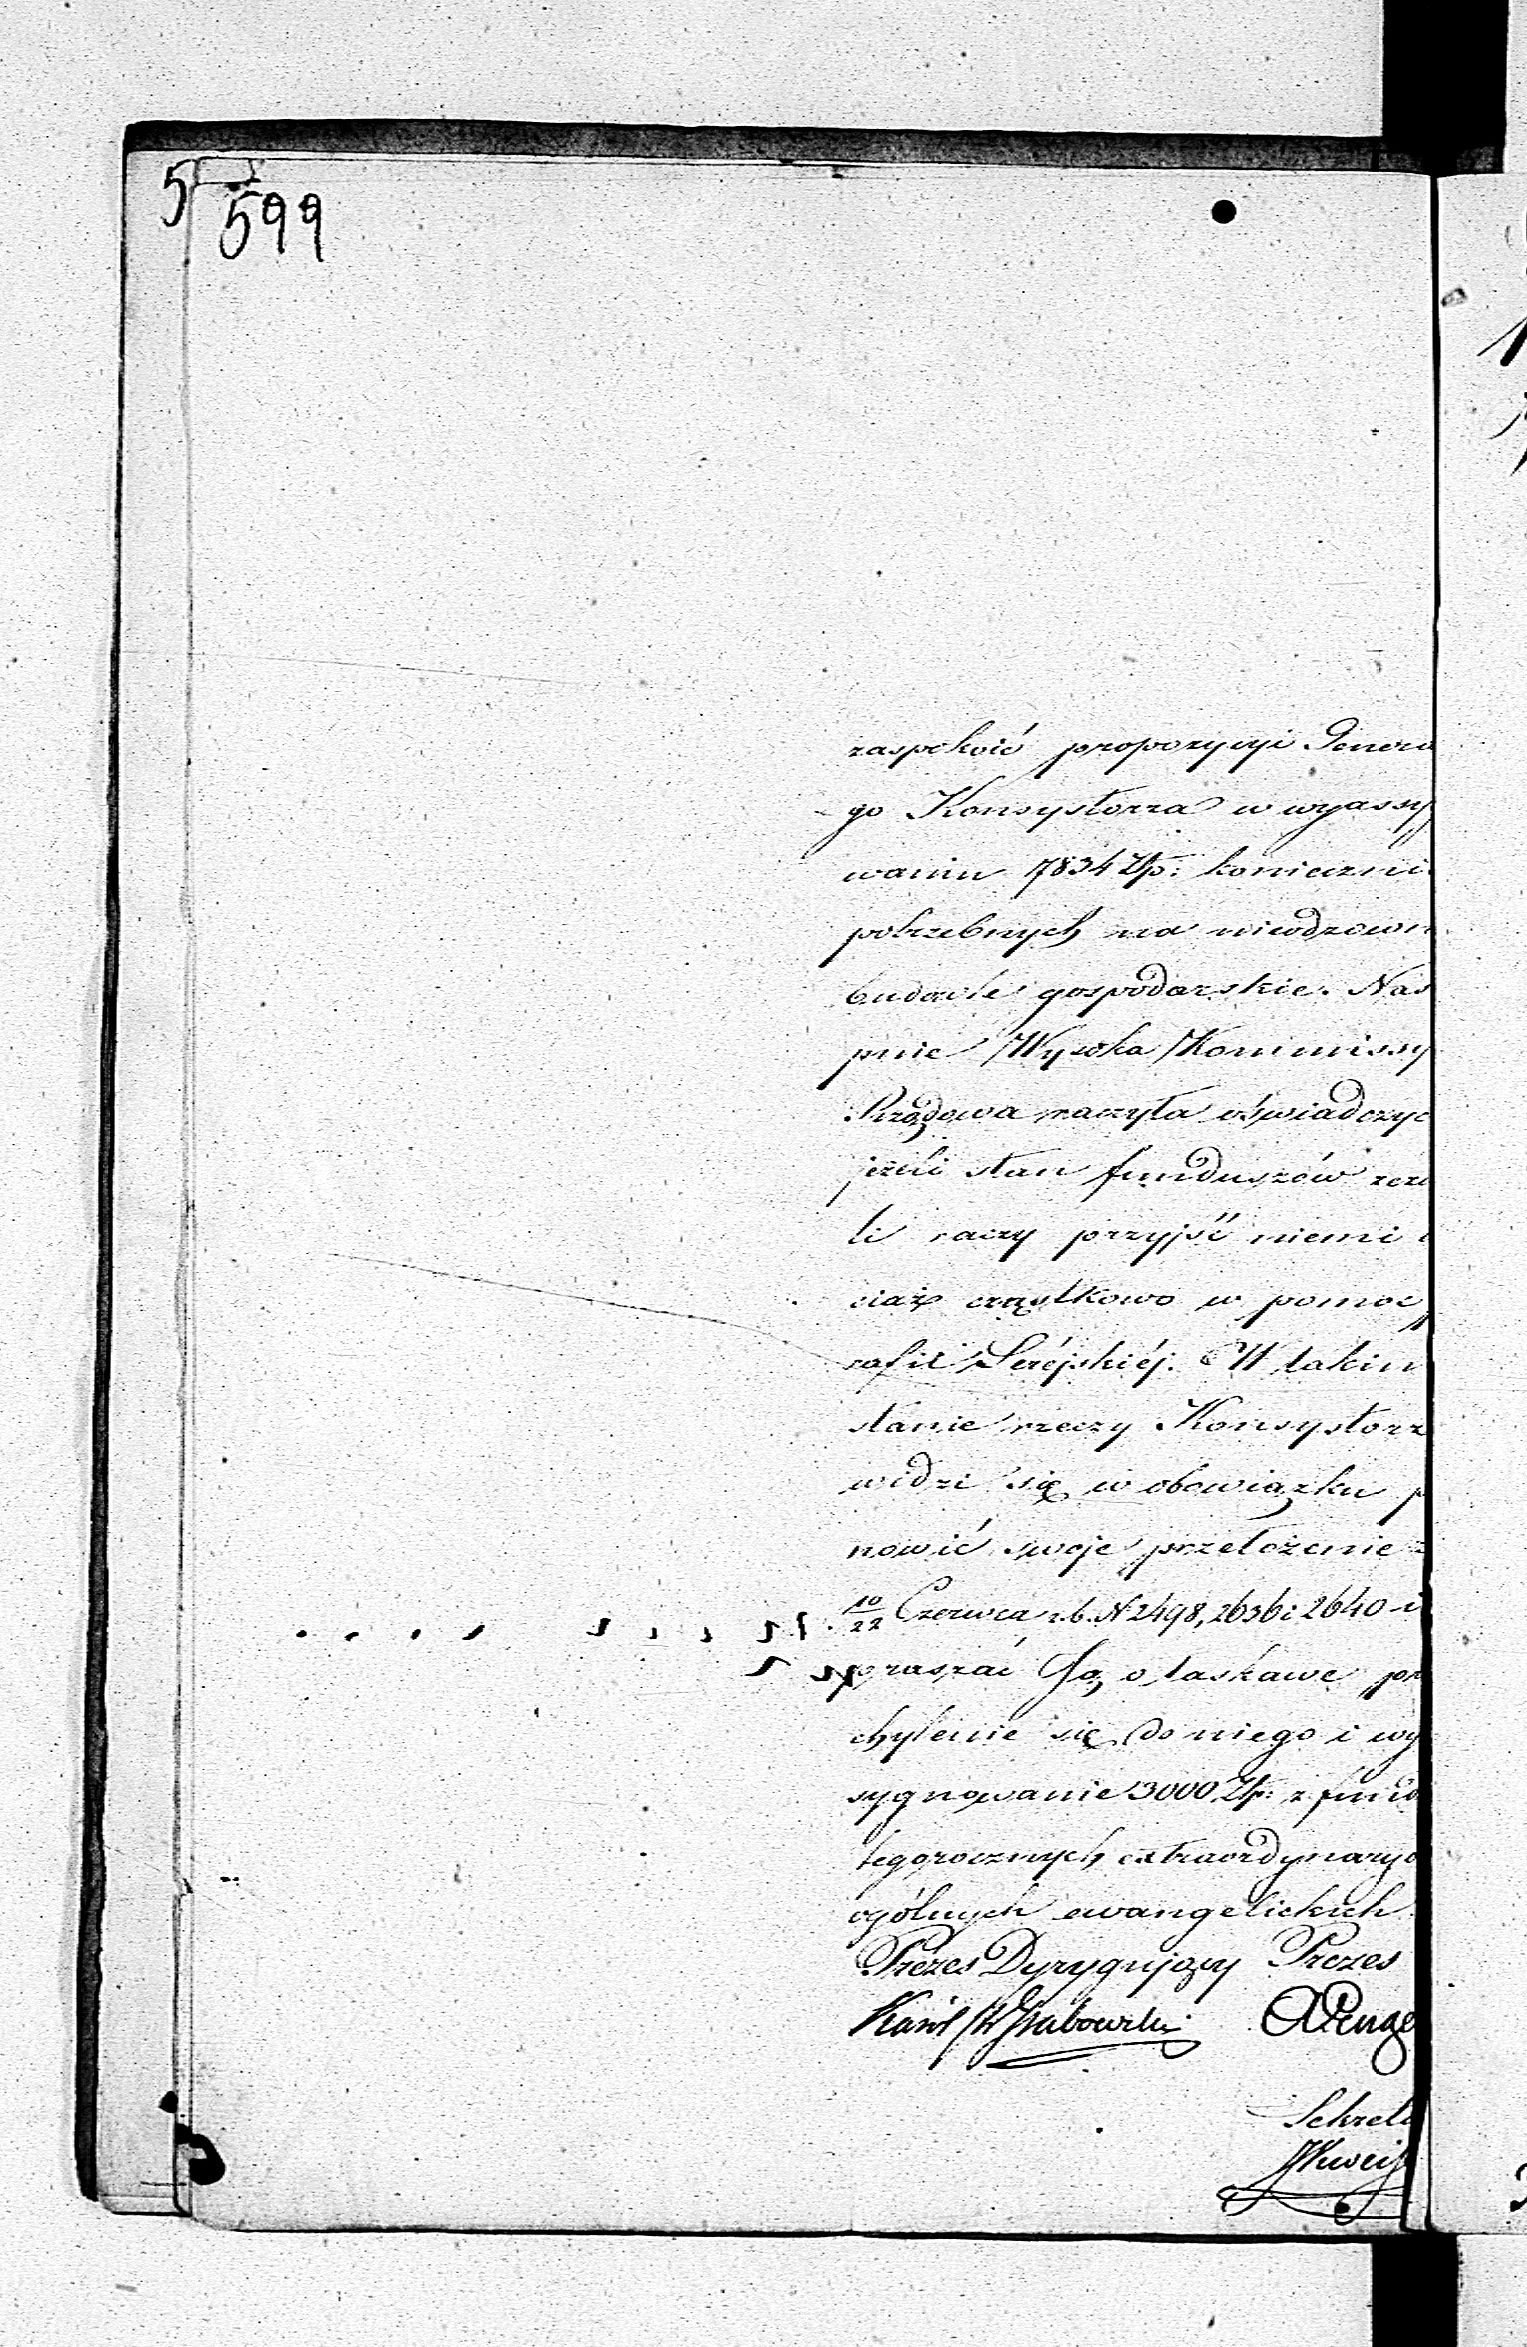 599
zaspokoić propozycyi Genera
go Konsystorza w wyassy
waniu 7834 Złp: koniecznie
potrzebnych na nieodzown
budowle gospodarskie. Nas
pnie Wysoka Kommissy
Rządowa raczyła oświadczyć
jeżeli stan funduszów zezw
li raczy przyjść niemi
ciaż cząstkowo w pomoc
rafii Seréjskiéj. W takim
stanie rzeczy Konsystorz
widzi się w obowiązku p
nowić swoje przełożenie z
10/22 Czerwca r.b. N 2498, 2636 i 2640 i
upraszać Ją o łaskawe prz
chylenie się do niego i wy
sygnowanie 3000 Złp: z fund
tegorocznych extraordynaryj
ogólnych ewangelickich.
Prezes Dyrygujący Prezes
Karol Hr Grabowski
Sekreta